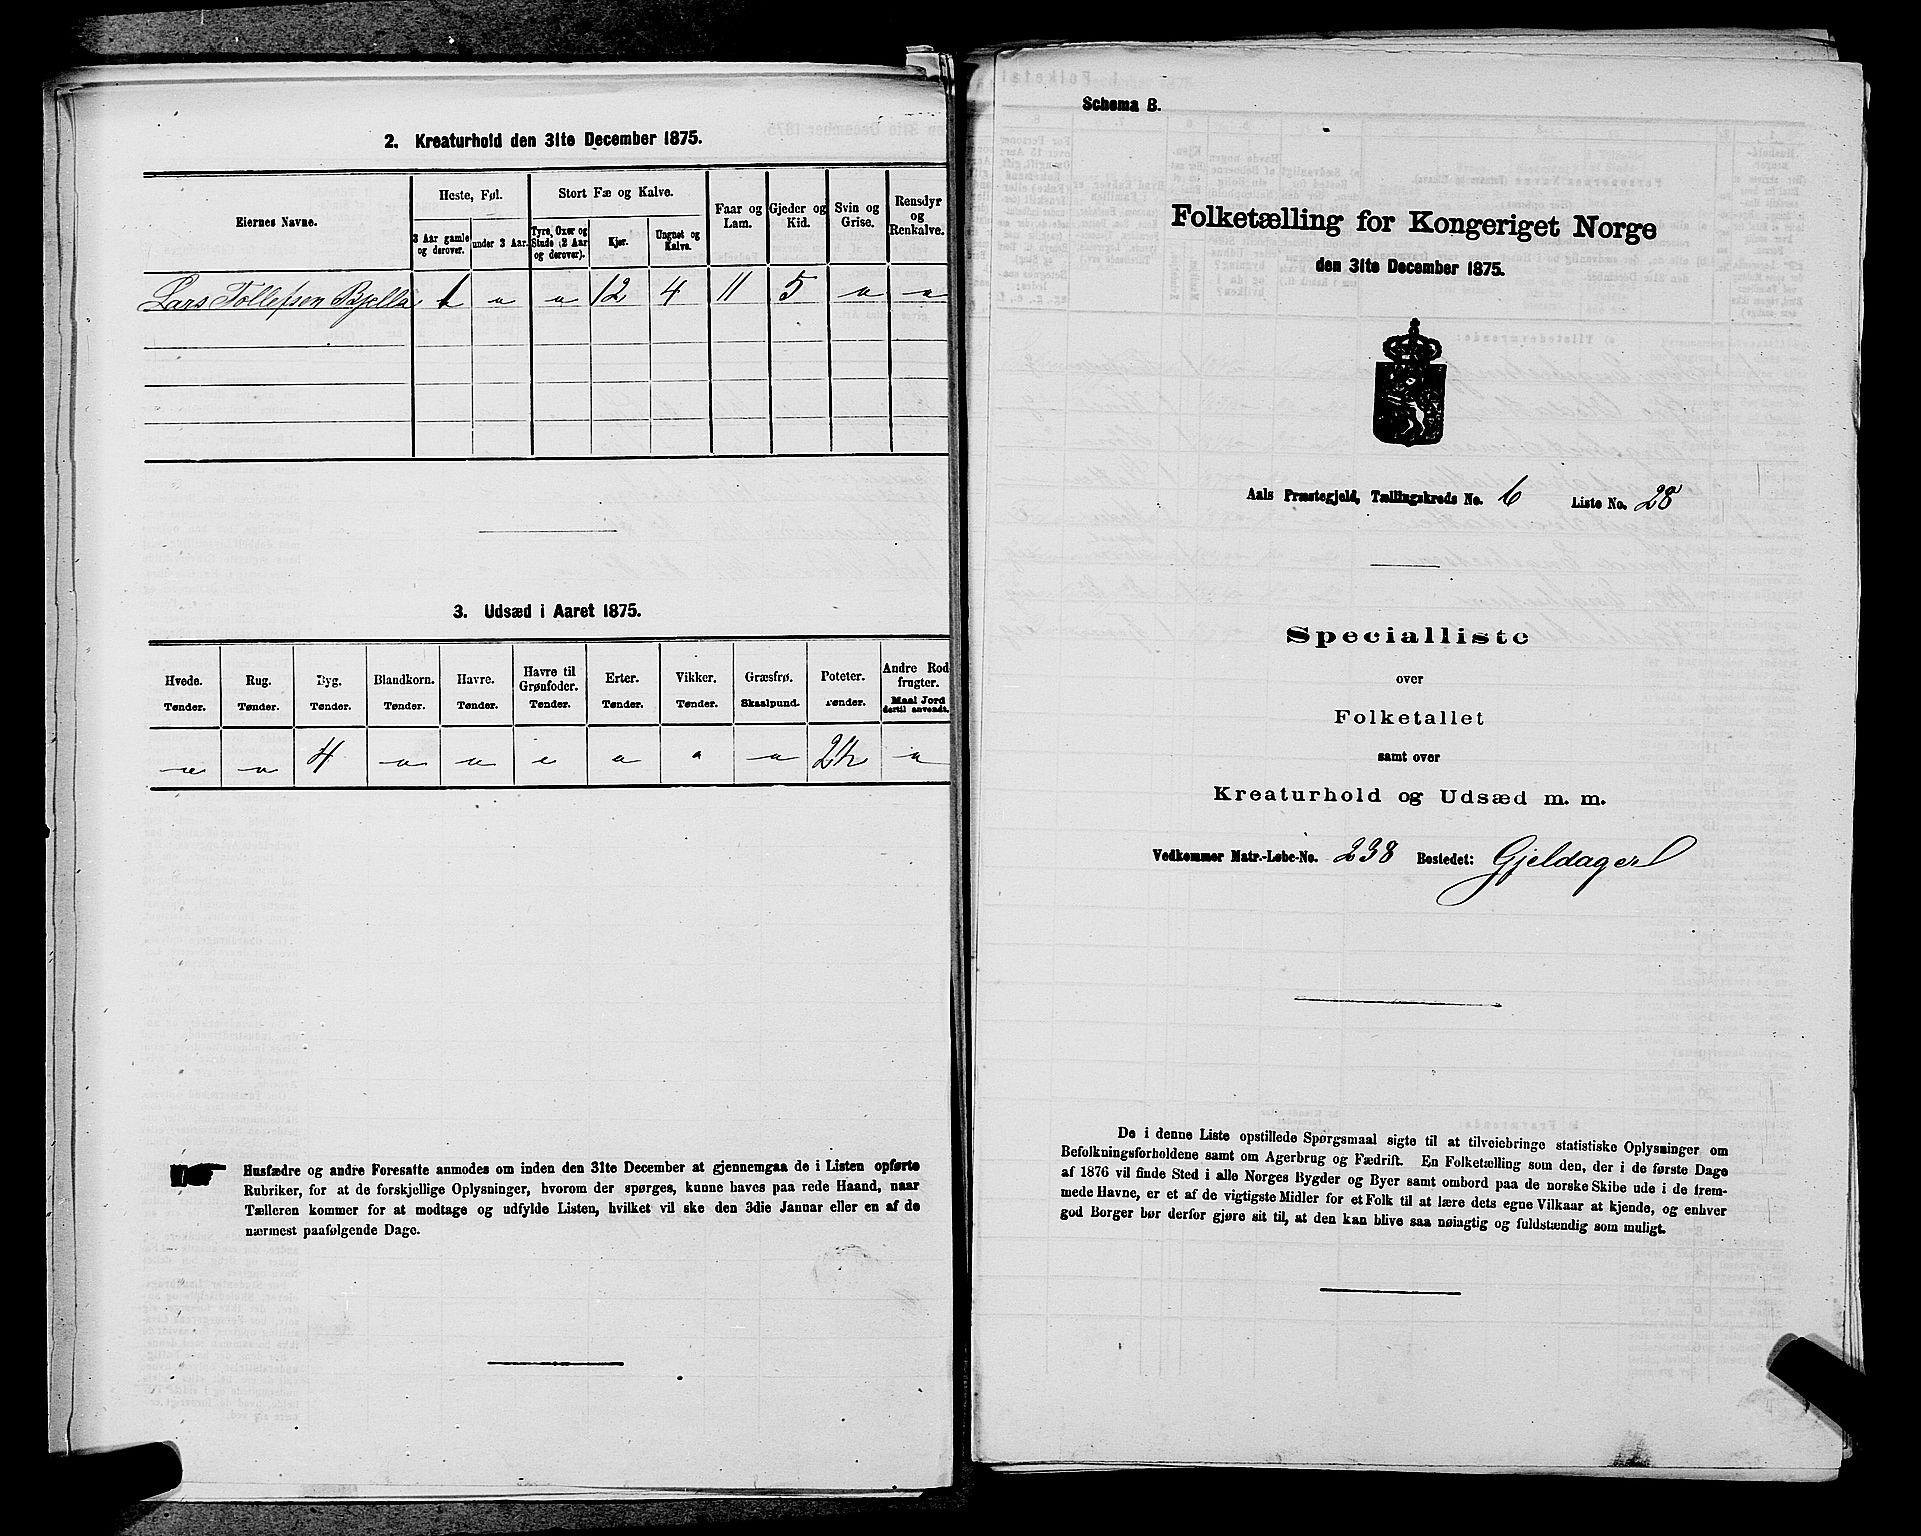 2. Kreaturhold den 31te December 1875.
Eiernes Navne.
Heste, Føl.
Stort Fæ og Kalve.
Faar og Lam.
Gjeder og Kid.
Svin og Grise.
Rensdyr og Renkalve.
3 Aar gamle og derover.
under 3 Aar.
Tyre, Oxer og Stude (2 Aar og derover).
Kjør.
Ungnøt og Kalve.
Lars Tollefsen Bjella 1 " " 12 4 11 5 " "
3. Udsæd i Aaret 1875.
Hvede. Rug. Byg. Blandkorn. Havre. Havre til Grønfoder. Erter. Vikker. Græsfrø. Poteter. Andre Rodfrugter.
Tønder. Tønder. Tønder. Tønder. Tønder. Tønder. Tønder. Tønder. Skaalpund. Tønder. Maal Jord dertil anvendt.
" " 4 " " " " " " "
Husfædre og andre Foresatte anmodes om inden den 31te December at gjennemgaa de i Listen opførte
Rubriker, for at de forskjellige Oplysninger, hvorom der spørges, kunne haves paa rede Haand, naar
Tælleren kommer for at modtage og udfylde Listen, hvilket vil ske den 3die Januar eller en af de
nærmest paafølgende Dage.
Schema B.
Folketælling for Kongeriget Norge
den 31te December 1875.
Aals Præstegjeld, Tællingskreds No. 6 Liste No. 28
Specialliste
over
Folketallet
samt over
Kreaturhold og Udsæd m. m.
Vedkommer Matr.-Løbe-No. 238 Bostedet: Gjeldager
De i denne Liste opstillede Spørgsmaal sigte til at tilveiebringe statistiske Oplysninger om
Befolkningsforholdene samt om Agerbrug og Fædrift. En Folketælling som den, der i de første Dage
af 1876 vil finde Sted i alle Norges Bygder og Byer samt ombord paa de norske Skibe ude i de frem-
mede Havne, er et af de vigtigste Midler for et Folk til at lære dets egne Vilkaar at kjende, og enhver
god Borger bør derfor gjøre sit til, at den kan blive saa nøiagtig og fuldstændig som muligt.